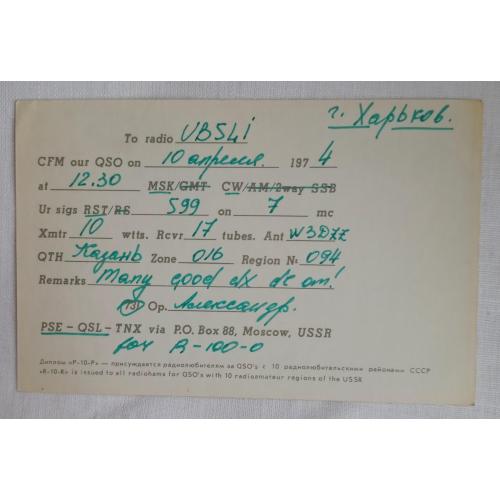 г. Харьков.
To radio UB5LI
CFM our QSO on 10 апреля. 1974
at 12.30 MSK/GMT CW/AM/2way SSB
Ur sigs RST/RS 599 on 7 mc
Xmtr 10 wtts. Rcvr 17 tubes. Ant W3DZZ
QTH Казань Zone 016 Region № 094
Remarks Many good dx de om!
73! Op. Александр.
PSE - QSL - TNX via P.O. Box 88, Moscow, USSR
for R-100-O
Диплом «Р-10-Р» — присуждается радиолюбителям за QSO's с 10 радиолюбительскими районами СССР
«R-10-R» is issued to all radiohams for QSO's with 10 radioamateur regions of the USSR